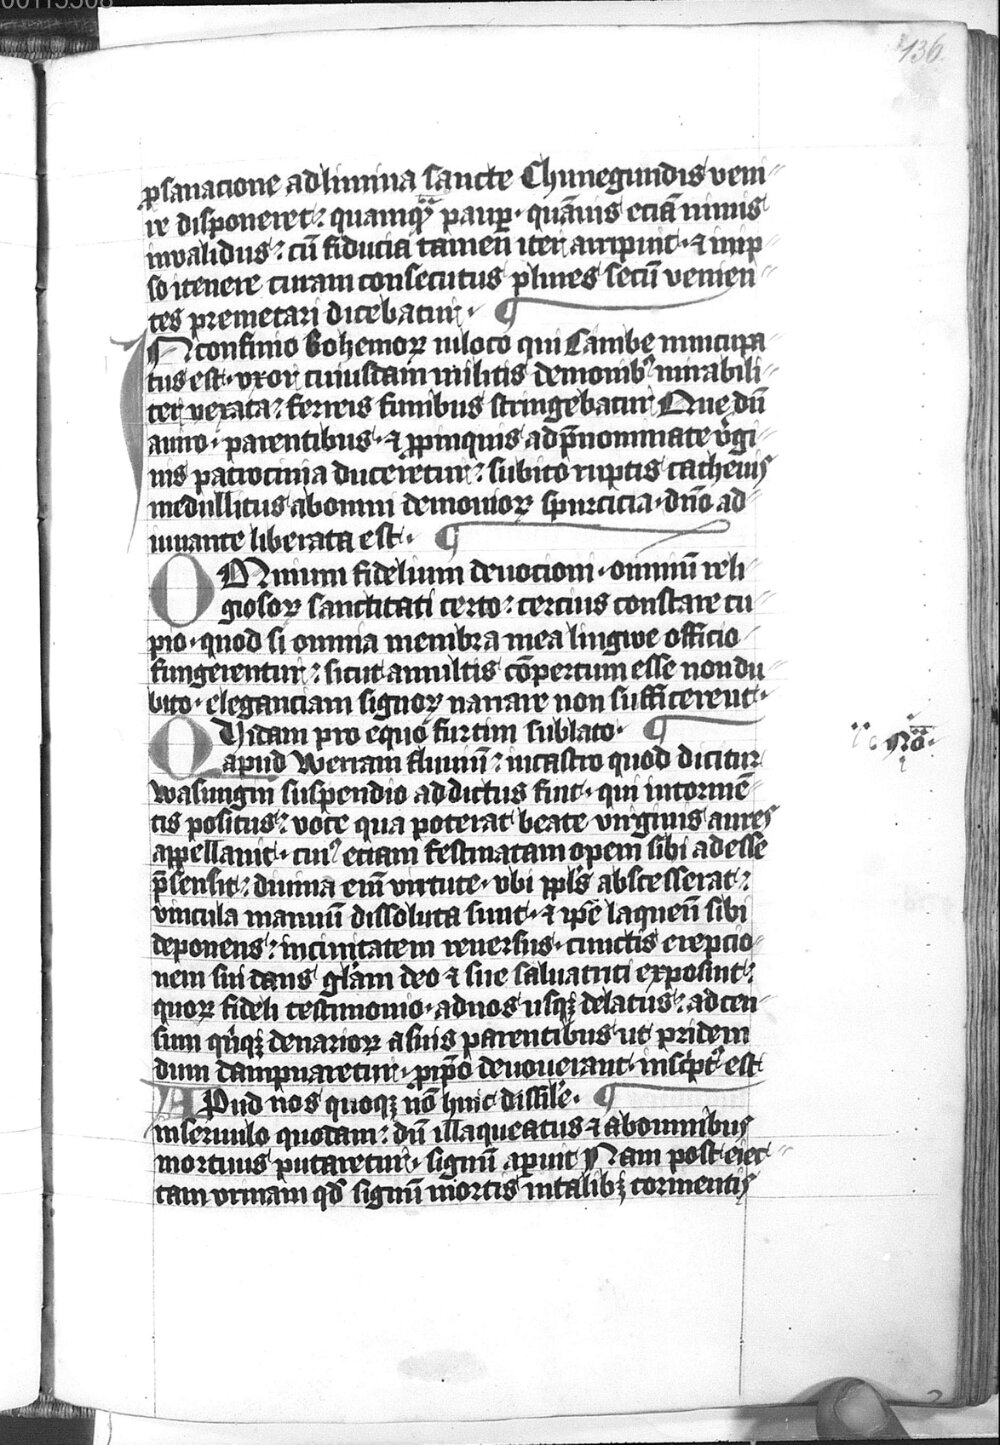 136.
ꝑ sanacione ad limina sancte Chunegundis veni
re disponeret: quamqͣꝫ paupͥ · quāuis eciā nimis
inualidus: cū fiducia tamen iter arripuit · ⁊ in ip
so itenere curam consecutus ꝑ lures secū venien
tes premetari dicebatur ·
IN confinio Bohemoꝝ in loco qui Cambe nuncupa
tus est · vxor cuiusdam militis demonibꝰ mirabili
ter vexata: ferreis funibus stringebatur Que dū
a uiro · parentibus · ⁊ ꝓpinquis ad p̄nominate v̓gi
nis patrocinia duceretur: subito ruptis cathenis
medullitus ab omni demonioꝝ spurcicia · dn̄o ad
iuuante liberata est ·
OMnium fidelium deuocioni · omniū reli
giosoꝝ sanctitati certo: cercius constare cu
pio · quod si omnia membra mea lingwe officio
fungerentur: sicut a multis cōpertum esse non du
bito · eleganciam signoꝝ narrare non sufficerent ·
QVidam pro equo furtim sublato ·
apud Werram fluuiū: in castro quod dicitur
wasungin suspendio addictus fuit · qui in tormē
tis positus: voce qua poterat beate virginis aures
appellauit · cuiꝰ eciam festinatam opem sibi adesse
p̄sensit: diuina eni̅ virtute · vbi ppl̓s abscesserat:
vincula manuū dissoluta sunt · ⁊ ip̄e laqueū sibi
deponens: in ciuitatem reuersus · cunctis erepcio
nem sui dans gl̓am deo ⁊ sue saluatrici exposuit:
quoꝝ fideli testimonio · ad nos usqꝫ delatus: ad cen
sum qͥnqꝫ denarioꝝ a suis parentibus ut pridem
dum dampnaretur · ꝓ ip̄o deuouerant · insc̓ptꝰ est
APud nos quoqꝫ nō huic dissil̓e ·
in seruulo quodam: dū illaqueatus ⁊ ab omnibus
mortuus putaretur · signū aꝑuit Nam post eiec
tam vrinam qd̓ signū mortis in talibꝫ tormentis